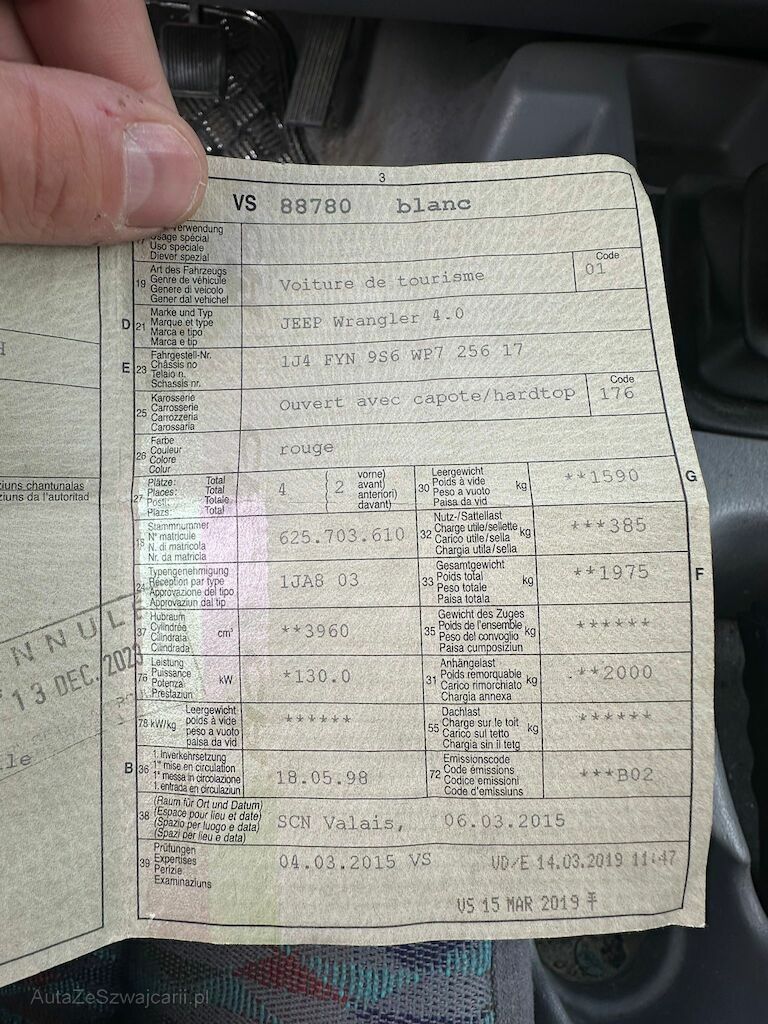 3
VS 88780 blanc
Verwendung
17 Usage spécial
Uso speciale
Diever spezial
Art des Fahrzeugs
19 Genre de véhicule
Genere di veicolo
Gener dal vehichel
Voiture de tourisme
Code
01
Marke und Typ
D 21 Marque et type
Marca e tipo
Marca e tip
JEEP Wrangler 4.0
Fahrgestell-Nr.
E 23 Châssis no
Telaio n.
Schassis nr.
1J4 FYN 9S6 WP7 256 17
Karosserie
25 Carrosserie
Carrozzeria
Carossaria
Ouvert avec capote/hardtop
Code
176
Farbe
26 Couleur
Colore
Colur
rouge
Plätze: Total
27 Places: Total
Posti: Totale
Plazs: Total
4 ( 2
vorne)
avant)
anteriori)
davant)
Leergewicht
30 Poids à vide kg
Peso a vuoto
Paisa da vid
**1590
G
Stammnummer
18 N° matricule
N. di matricola
Nr. da matricla
625.703.610
Nutz-/Sattellast
32 Charge utile/sellette kg
Carico utile/sella
Chargia utila/sella
***385
Typengenehmigung
24 Réception par type
Approvazione del tipo
Approvaziun dal tip
1JA8 03
Gesamtgewicht
33 Poids total kg
Peso totale
Paisa totala
**1975
F
Hubraum
37 Cylindrée cm³
Cilindrata
Cilindrada
**3960
Gewicht des Zuges
35 Poids de l'ensemble kg
Peso del convoglio
Paisa cumposiziun
******
Leistung
76 Puissance kW
Potenza
Prestaziun
*130.0
Anhängelast
31 Poids remorquable kg
Carico rimorchiato
Chargia annexa
.**2000
Leergewicht
78 kW/kg poids à vide
peso a vuoto
paisa da vid
******
Dachlast
55 Charge sur le toit kg
Carico sul tetto
Chargia sin il tetg
******
1. Inverkehrsetzung
B 36 1re mise en circulation
1a messa in circolazione
1. entrada en circulaziun
18.05.98
Emissionscode
72 Code émissions
Codice emissioni
Code d'emissiuns
***B02
(Raum für Ort und Datum)
38 (Espace pour lieu et date)
(Spazio per luogo e data)
(Spazi per lieu e data)
SCN Valais, 06.03.2015
Prüfungen
39 Expertises
Perizie
Examinaziuns
04.03.2015 VS
VD/E 14.03.2019 11:47
VS 15 MAR 2019
ziuns chantunalas
ziuns da l'autoritad
NNULÉ
13 DEC. 2023
le
AutaZeSzwajcarii.pl